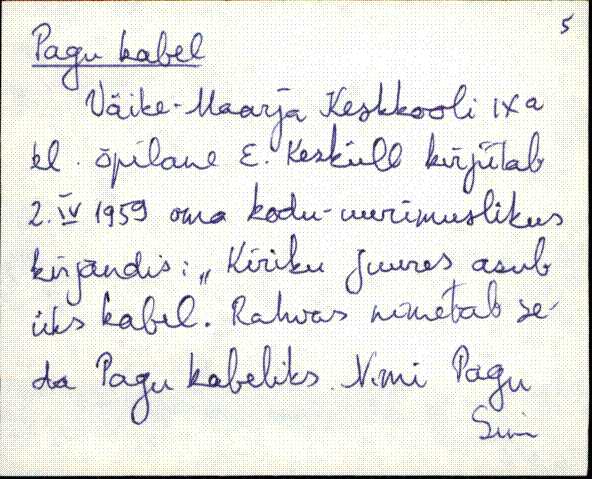 5
Pagu kabel
Väike-Maarja Keskkooli IX a
kl. õpilane E. Kesküll kirjutab
2. IV 1959 oma kodu-uurimuslikus
kirjandis: „Kiriku juures asub
üks kabel. Rahvas nimetab se-
da Pagu kabeliks. Nimi Pagu